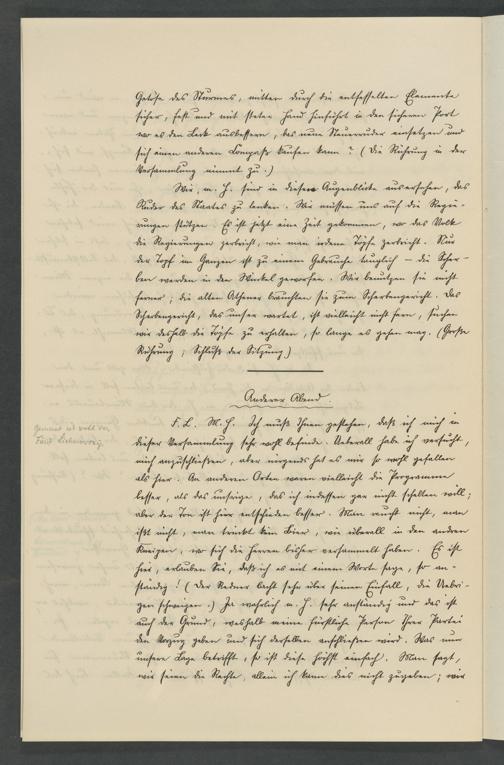 Getöse des Sturmes, mitten durch die entfesselten Elemente
sicher, fest und mit steter Hand hinführt in den sicheren Port
wo es den Leck ausbessern, das neue Steuerruder einsetzen und
sich einen anderen Compaß kaufen kann? (Die Rührung in der
Versammlung nimmt zu.)
Wir, m. H. sind in diesem Augenblicke ausersehen, das
Ruder des Staates zu lenken. Wir müssen uns auf die Regie-
rungen stützen. Es ist jetzt eine Zeit gekommen, wo das Volk
die Regierungen zerbricht, wie man irdene Töpfe zerbricht. Nur
der Topf im Ganzen ist zu einem Gebrauche tauglich – die Scher-
ben werden in den Winkel geworfen. Wir benutzen sie nicht
ferner; die alten Athener brauchten sie zum Scherbengericht. Das
Scherbengericht, das unser wartet, ist vielleicht nicht fern, suchen
wir deshalb die Töpfe zu erhalten, so lange es gehen mag. (Große
Rührung; Schluß der Sitzung.)
Anderer Abend.
F. L. M. H. Ich muß Ihnen gestehen, daß ich mich in
dieser Versammlung sehr wohl befinde. Ueberall habe ich versucht,
mich anzuschließen, aber nirgends hat es mir so wohl gefallen
als hier. An anderen Orten waren vielleicht die Programme
besser, als das unsrige, das ich indessen gar nicht schelten will;
aber der Ton ist hier entschieden besser. Man raucht nicht, man
ißt nicht, man trinkt kein Bier, wie überall in den andren
Kneipen, wo sich die Herren bisher versammelt haben. Es ist
hier, erlauben Sie, daß ich es mit einem Worte sage, so an-
ständig! (Der Redner lacht sehr über seinen Einfall, die Uebri-
gen schweigen.) Ja wahrlich m. H. sehr anständig und das ist
auch der Grund, weshalb meine fürstliche Person Ihrer Partei
den Vorzug geben und sich derselben anschließen wird. Was nun
unsere Lage betrifft, so ist diese höchst einfach. Man sagt,
wir seien die Rechte, allein ich kann dies nicht zugeben; wir
Gemeint ist wohl der
Fürst Lichnowsky.